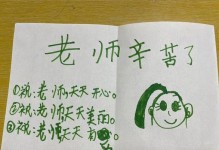 老师辛苦了
①祝:老师天天开心。
②祝:老师天天美丽。
③祝:老师天天